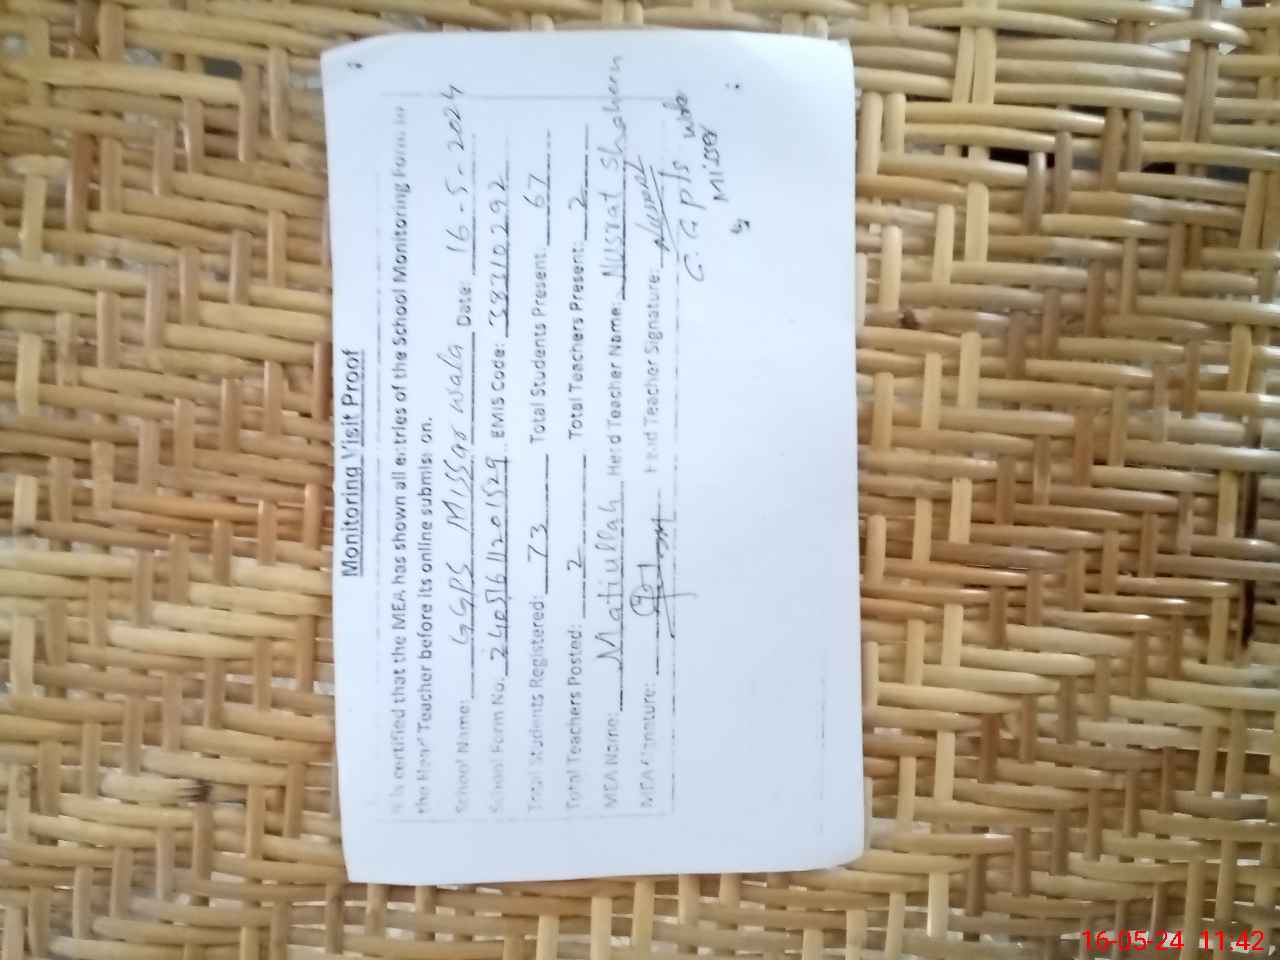 Monitoring Visit Proof
It is certified that the MEA has shown all entries of the School Monitoring Form to
the Head Teacher before its online submission.
School Name: GGPS Missar wala Date: 16-5-2024
School Form No: EMIS Code: 38310292
Total Students Registered: 73 Total Students Present: 67
Total Teachers Posted: 2 Total Teachers Present: 2
MEA Name: Matiullah Head Teacher Name: Nusrat Shaheen
MEA Signature: Head Teacher Signature: Nusrat
G.G P/S
Misser wala
16-05-24 11:42